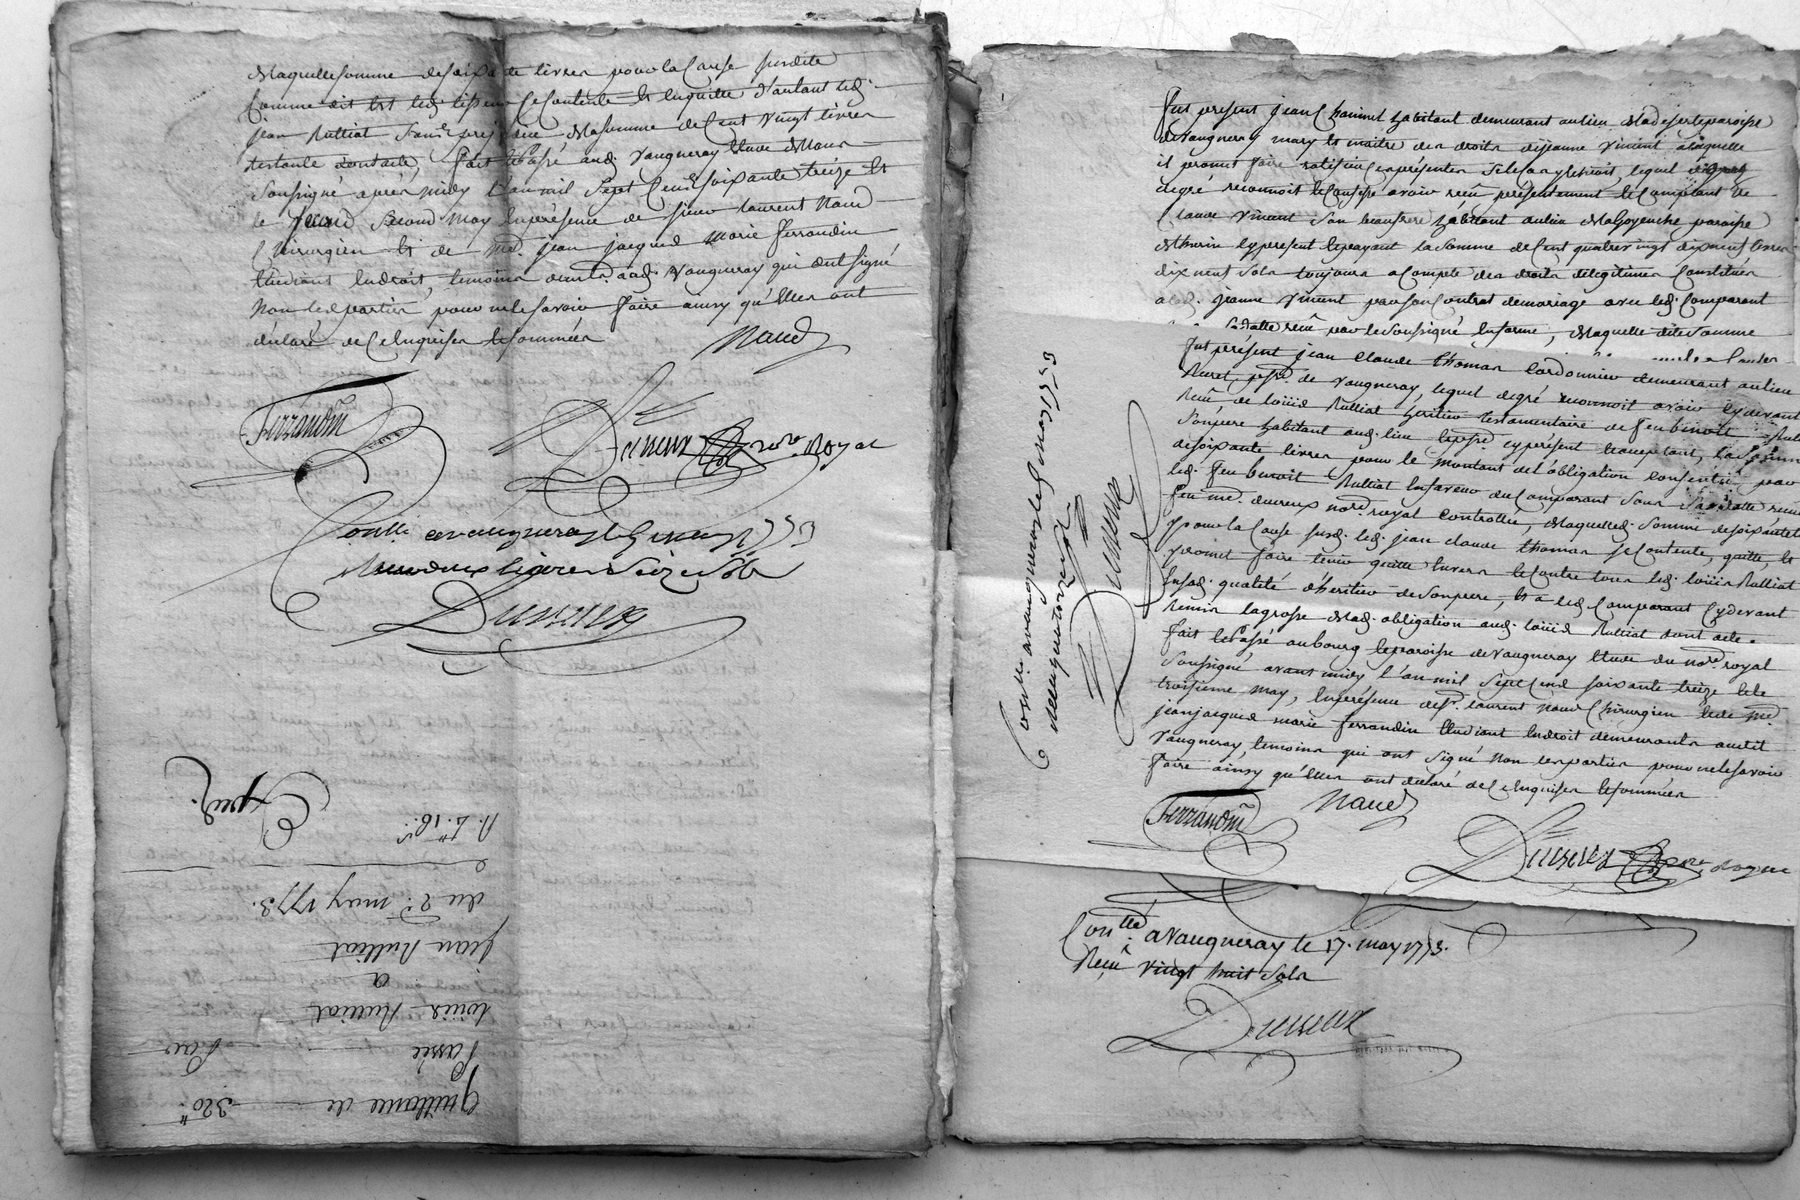 de laquelle somme de soixante livres pour la cause susdite
comme dit est led. se contente et en quitte d'autant led.
jean Rulliat sans prejudice de la somme de Cent vingt livres
restante dont acte, fait et Passé aud. Vaugneray Etude de Nous
soussigné après midy l'an mil Sept Cent soixante treize et
le second may En présence de sieur laurent Naud
Chirurgien et de me. jean jacques marie ferrandin
Etudiant en droit, temoins aud. Vaugneray qui ont signé
Non les parties pour ne le savoir faire ainsy qu'elles ont
déclaré de Ce Enquises et sommées
Naud
Ferrandin
Duvieux Nore. Royal
Contllé a vaugneray le 1773
Reçu deux livres Seize Sols
Duvieux
Quittance de 320"
Passée Par
loüis Rulliat
a
jean Rulliat
du 2e. may 1773.
Exped.
fut présent jean Chaninel habitant demeurant au lieu de la deserte paroisse
de Vaugneray mary et maitre des droits de jeanne Vincent a laquelle
il promet faire ratifier les présentes lequel
degré reconnoit et Confesse avoir reçu présentement et Comptant de
Claude Vincent son beaufrere habitant au lieu de la Goyenche paroisse
de thurin cy present et payant la somme de Cent quatre vingt dix neuf livres
dix neuf sols toujours a Compte des droits de legitimes Constitués
a lad. jeanne Vincent par son Contrat de mariage avec led. Comparant
sa datte reçu par le Soussigné En forme, de laquelle dite somme
fut présent jean Claude thomas Cordonnier demeurant au lieu
psse. de Vaugneray, lequel degré reconnoit avoir cy devant
Reçu de loüis Rulliat héritier testamentaire de feu benoit
son pere habitant aud. lieu et psse. cy présent et acceptant, la Somme
de soixante livres pour le montant de l'obligation consentie par
led. feu benoit Rulliat En faveur du Comparant sous sa datte reçue
feu me. duvieux nore. royal controllée, de laquelle d. somme de soixante
pour la cause susd. led. jean claude thomas se Contente, quitte, et
promet faire tenir quitte Envers et Contre tous led. loüis Rulliat
En sad. qualité d'heritier de son pere, et a led. Comparant Cy devant
Remis la grosse de lad. obligation aud. loüis Rulliat dont acte.
fait et Passé au bourg et paroisse de Vaugneray Etude du nore. royal
Soussigné avant midy l'an mil Sept Cent soixante treize et le
troisieme may, En présence de sr. laurent Naud Chirurgien et de me.
jean jacques marie ferrandin Etudiant En droit demeurants audit
Vaugneray, temoins qui ont signé Non les parties pour ne le savoir
faire ainsy qu'elles ont declaré de Ce Enquises et sommées
Ferrandin
Naud
Duvieux Nore. Royal
Contllé. a vaugneray le 1773
Reçu quatorze sols
Duvieux
Contllé. a Vaugneray le 17. may 1773.
Reçu Vingt huit Sols
Duvieux